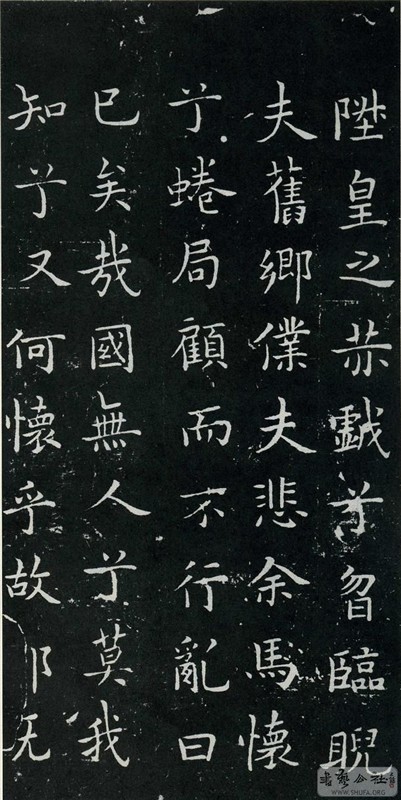 陞皇之赤戲兮曶臨睨
夫舊鄉僕夫悲余馬懷
兮蜷局顧而不行亂曰
已矣哉國無人兮莫我
知兮又何懷乎故无
書藝公社
WWW.SHUFA.ORG